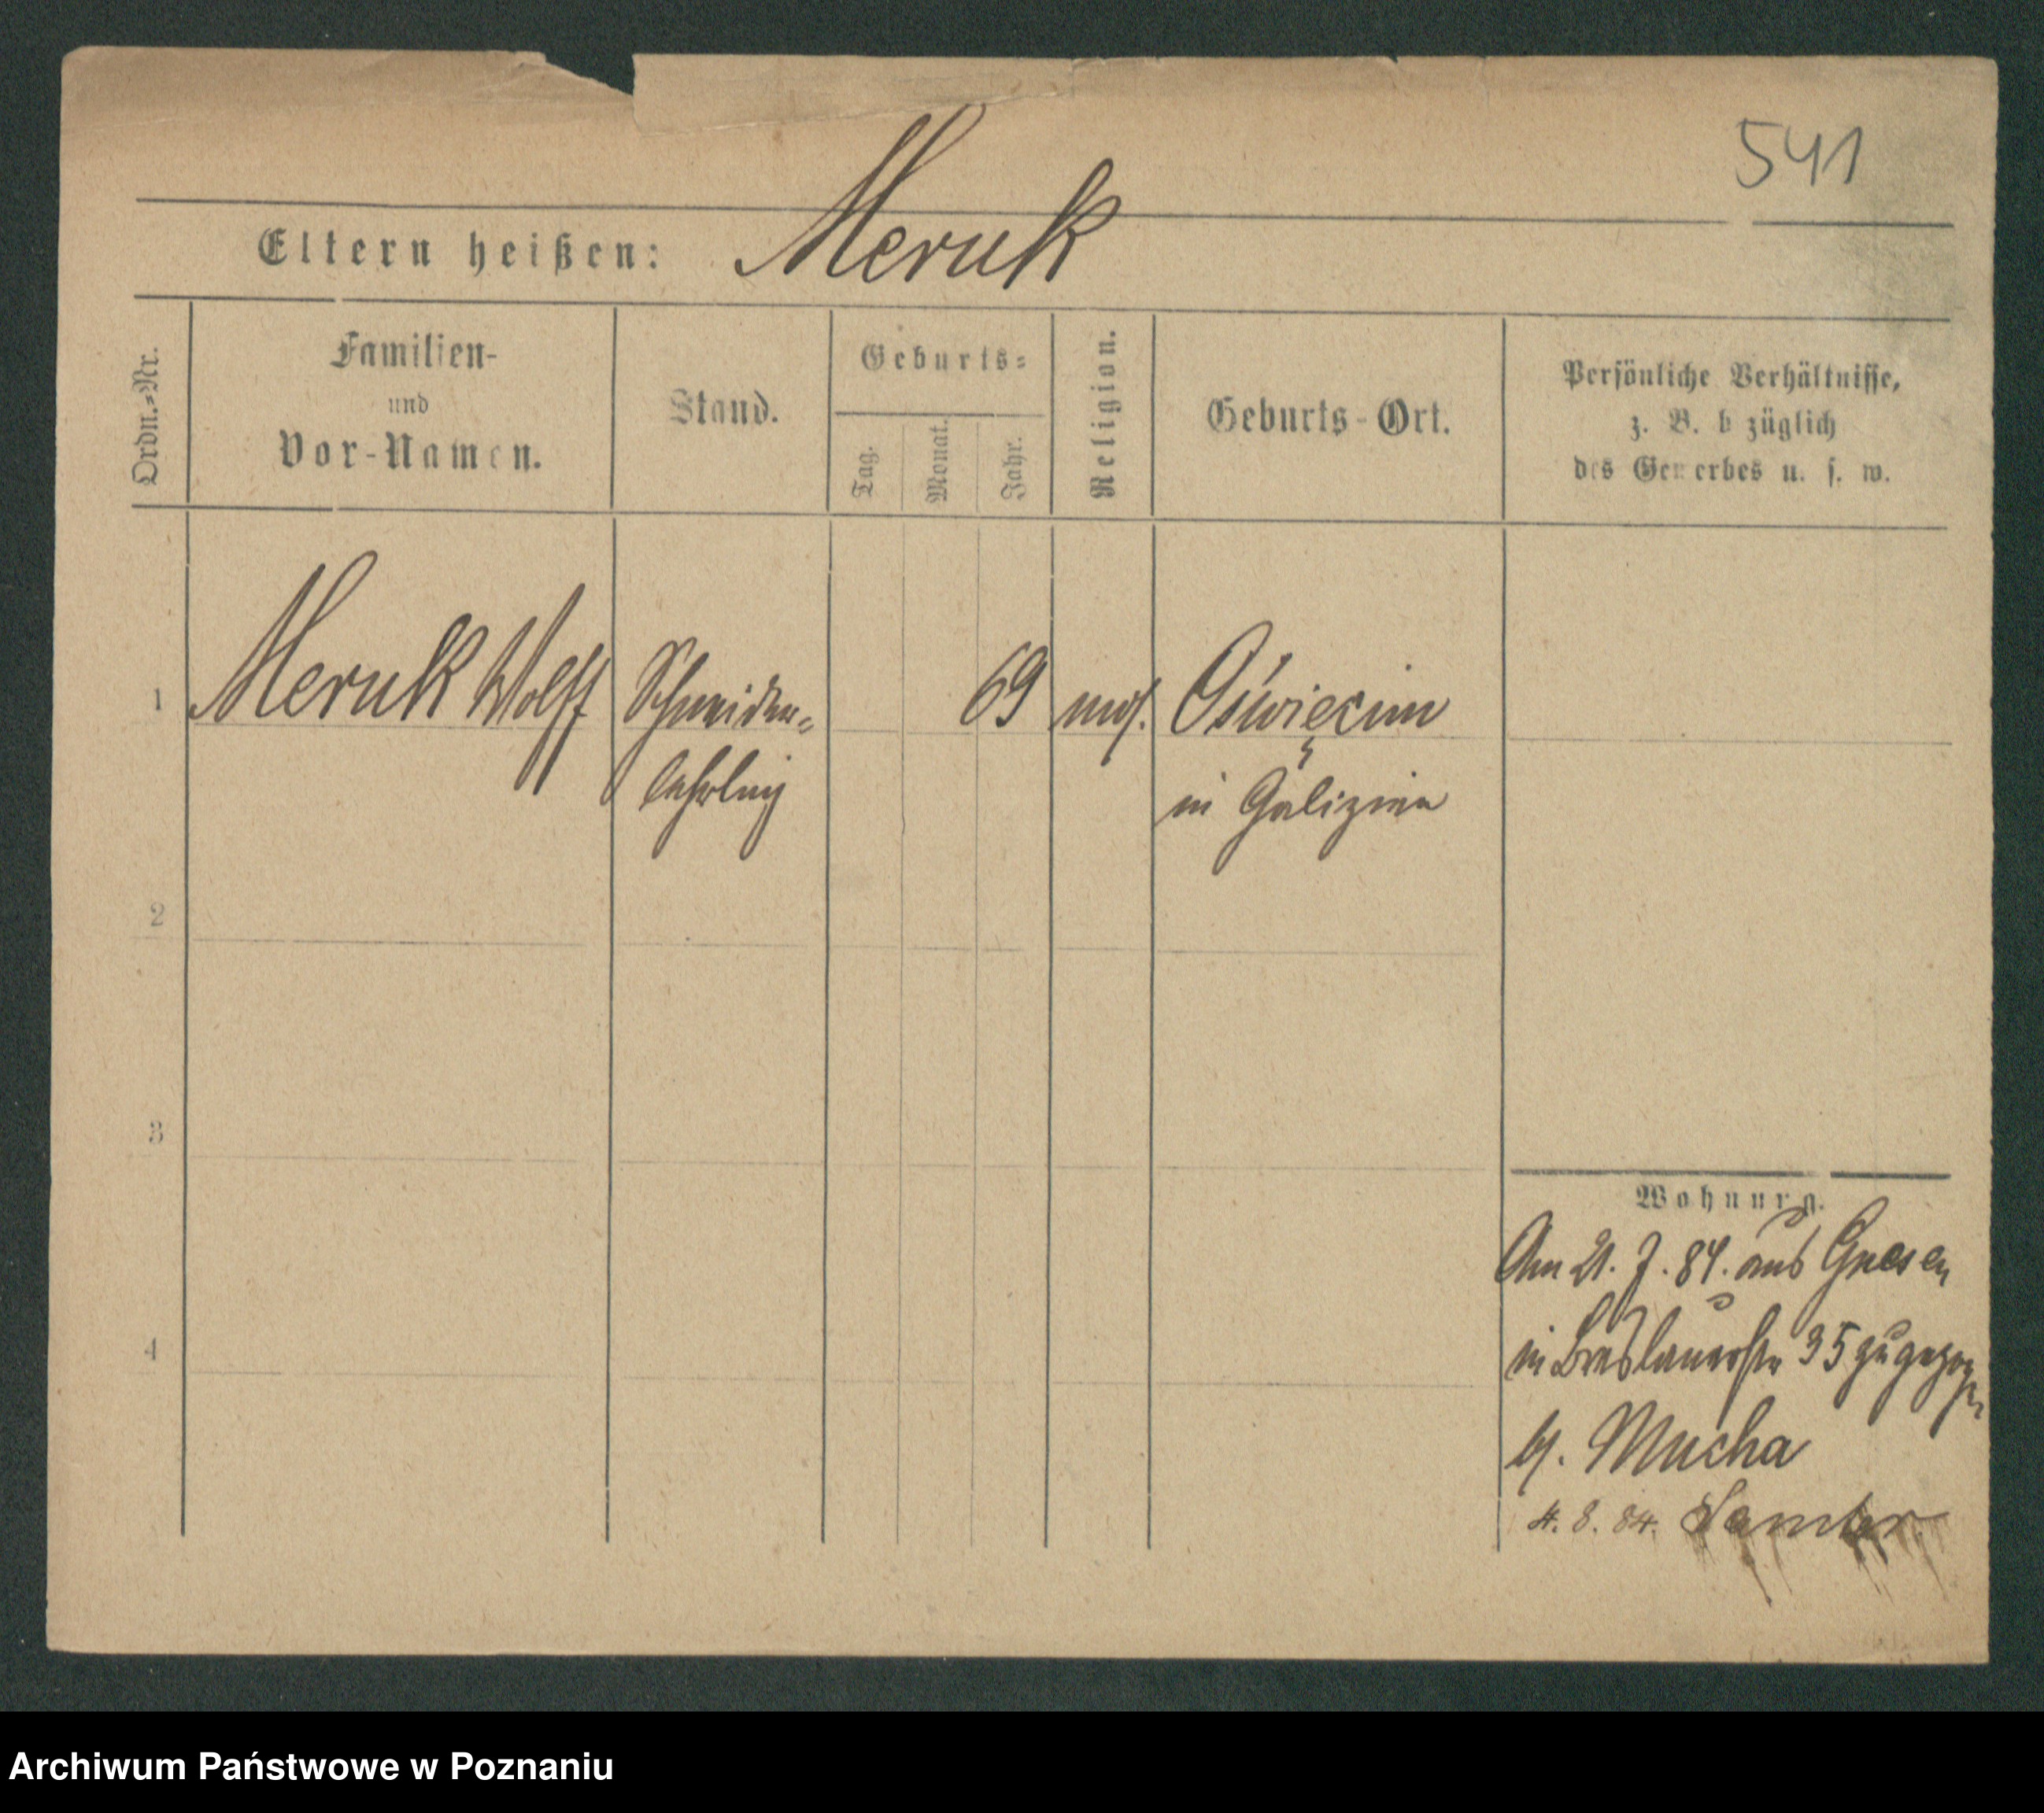 541
Eltern heißen: Meruk
Ordn.-Nr.
Familien-
und
Vor-Namen.
Stand.
Geburts-
Tag.
Monat.
Jahr.
Religion.
Geburts-Ort.
Persönliche Verhältnisse,
z. B. b züglich
des Gewerbes u. s. w.
1 Meruk Wolff Schneider- 69 mos. Oświęcim
lehrling in Galizien
2
3
4
Wohnung.
Am 21. 7. 84. aus Gnesen
in Breslauerstr 35 zugezogen
bei Mucha
4. 8. 84. Samter
Archiwum Państwowe w Poznaniu